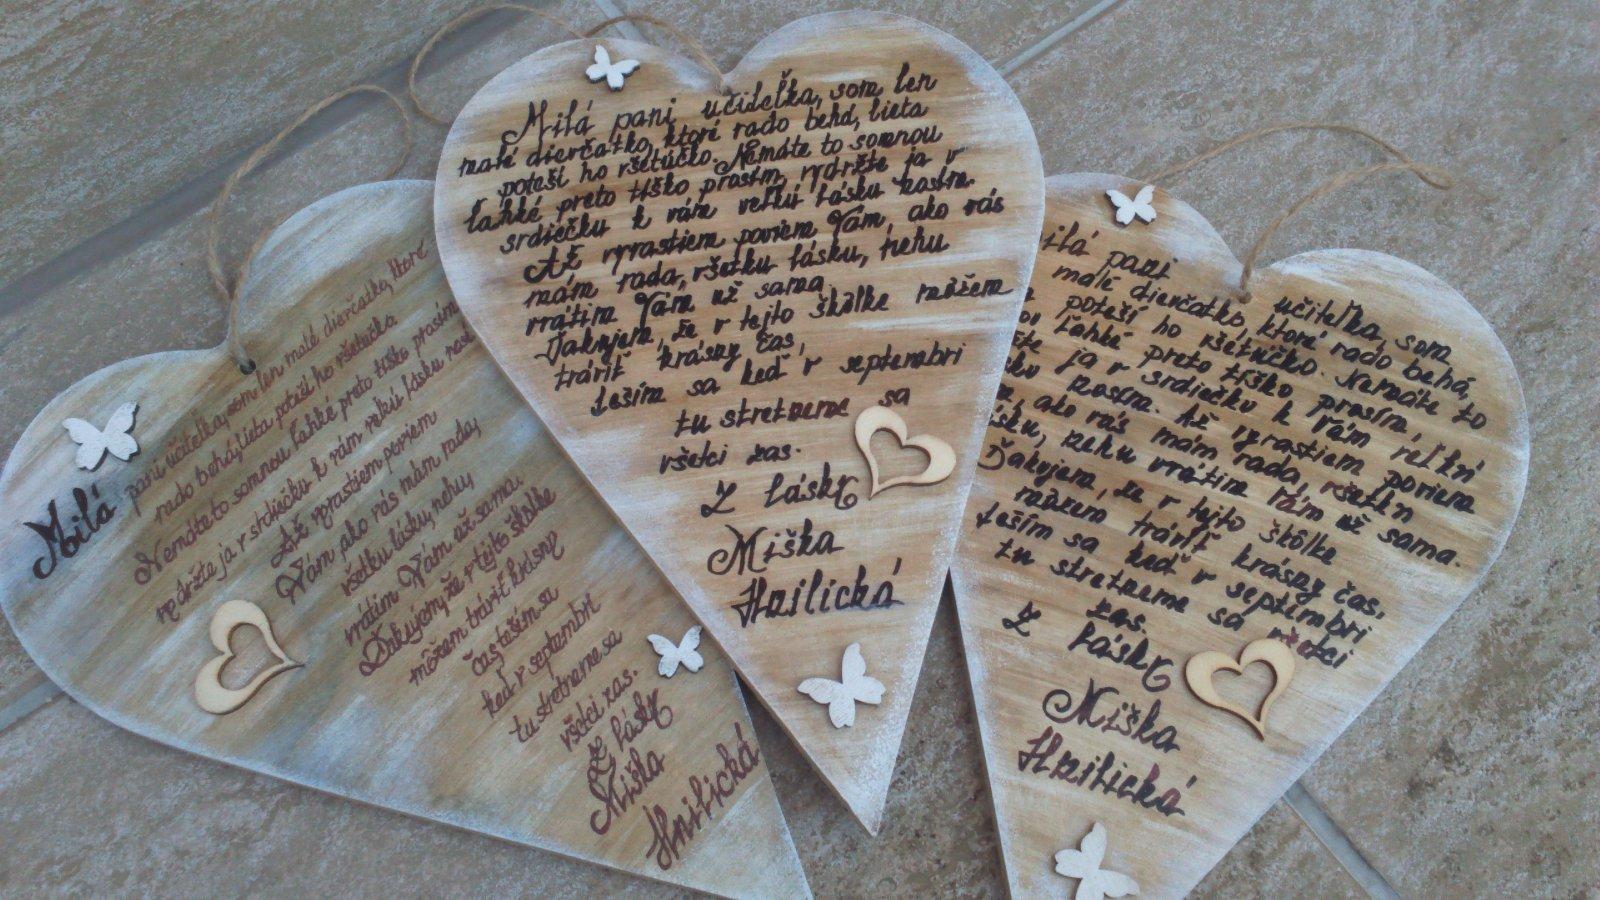 Milá pani učiteľka, som len malé dievčatko, ktoré
rado behá, lieta poteší ho všetučko
Nemáte to somnou ľahké preto tíško prosím
vydržte ja v srdiečku k vám veľkú lásku
Až vyrastiem poviem
Vám ako vás mám rada,
všetku lásku, nehu,
vrátim Vám už sama.
Ďakujem, že v tejto škôlke
môžem tráviť krásny
čas teším sa
keď v septembri
tu stretneme sa
všetci zas.
Z lásky
Miška
Hnilická
Milá pani učiteľka, som len
malé dievčatko, ktoré rado behá, lieta
poteší ho všetúčko. Nemáte to somnou
ľahké preto tíško prosím, vydržte ja v
srdiečku k vám veľkú lásku nosím.
Až vyrastiem poviem Vám, ako vás
mám rada, všetku lásku, nehu
vrátim Vám už sama.
Ďakujem, že v tejto škôlke môžem
tráviť krásny čas,
teším sa keď v septembri
tu stretneme sa
všetci zas.
Z lásky
Miška
Hnilická
ilá pani učiteľka, som
malé dievčatko, ktoré rado behá,
poteší ho všetučko. Nemáte to
ľahké preto tíško prosím,
ja v srdiečku k Vám veľkú
nosím. Až vyrastiem poviem
ako vás mám rada, všetku
nehu vrátim Vám už sama.
Ďakujem, že v tejto škôlke
môžem tráviť krásny čas,
teším sa keď v septembri
tu stretneme sa všetci
zas.
Z lásky
Miška
Hnilická